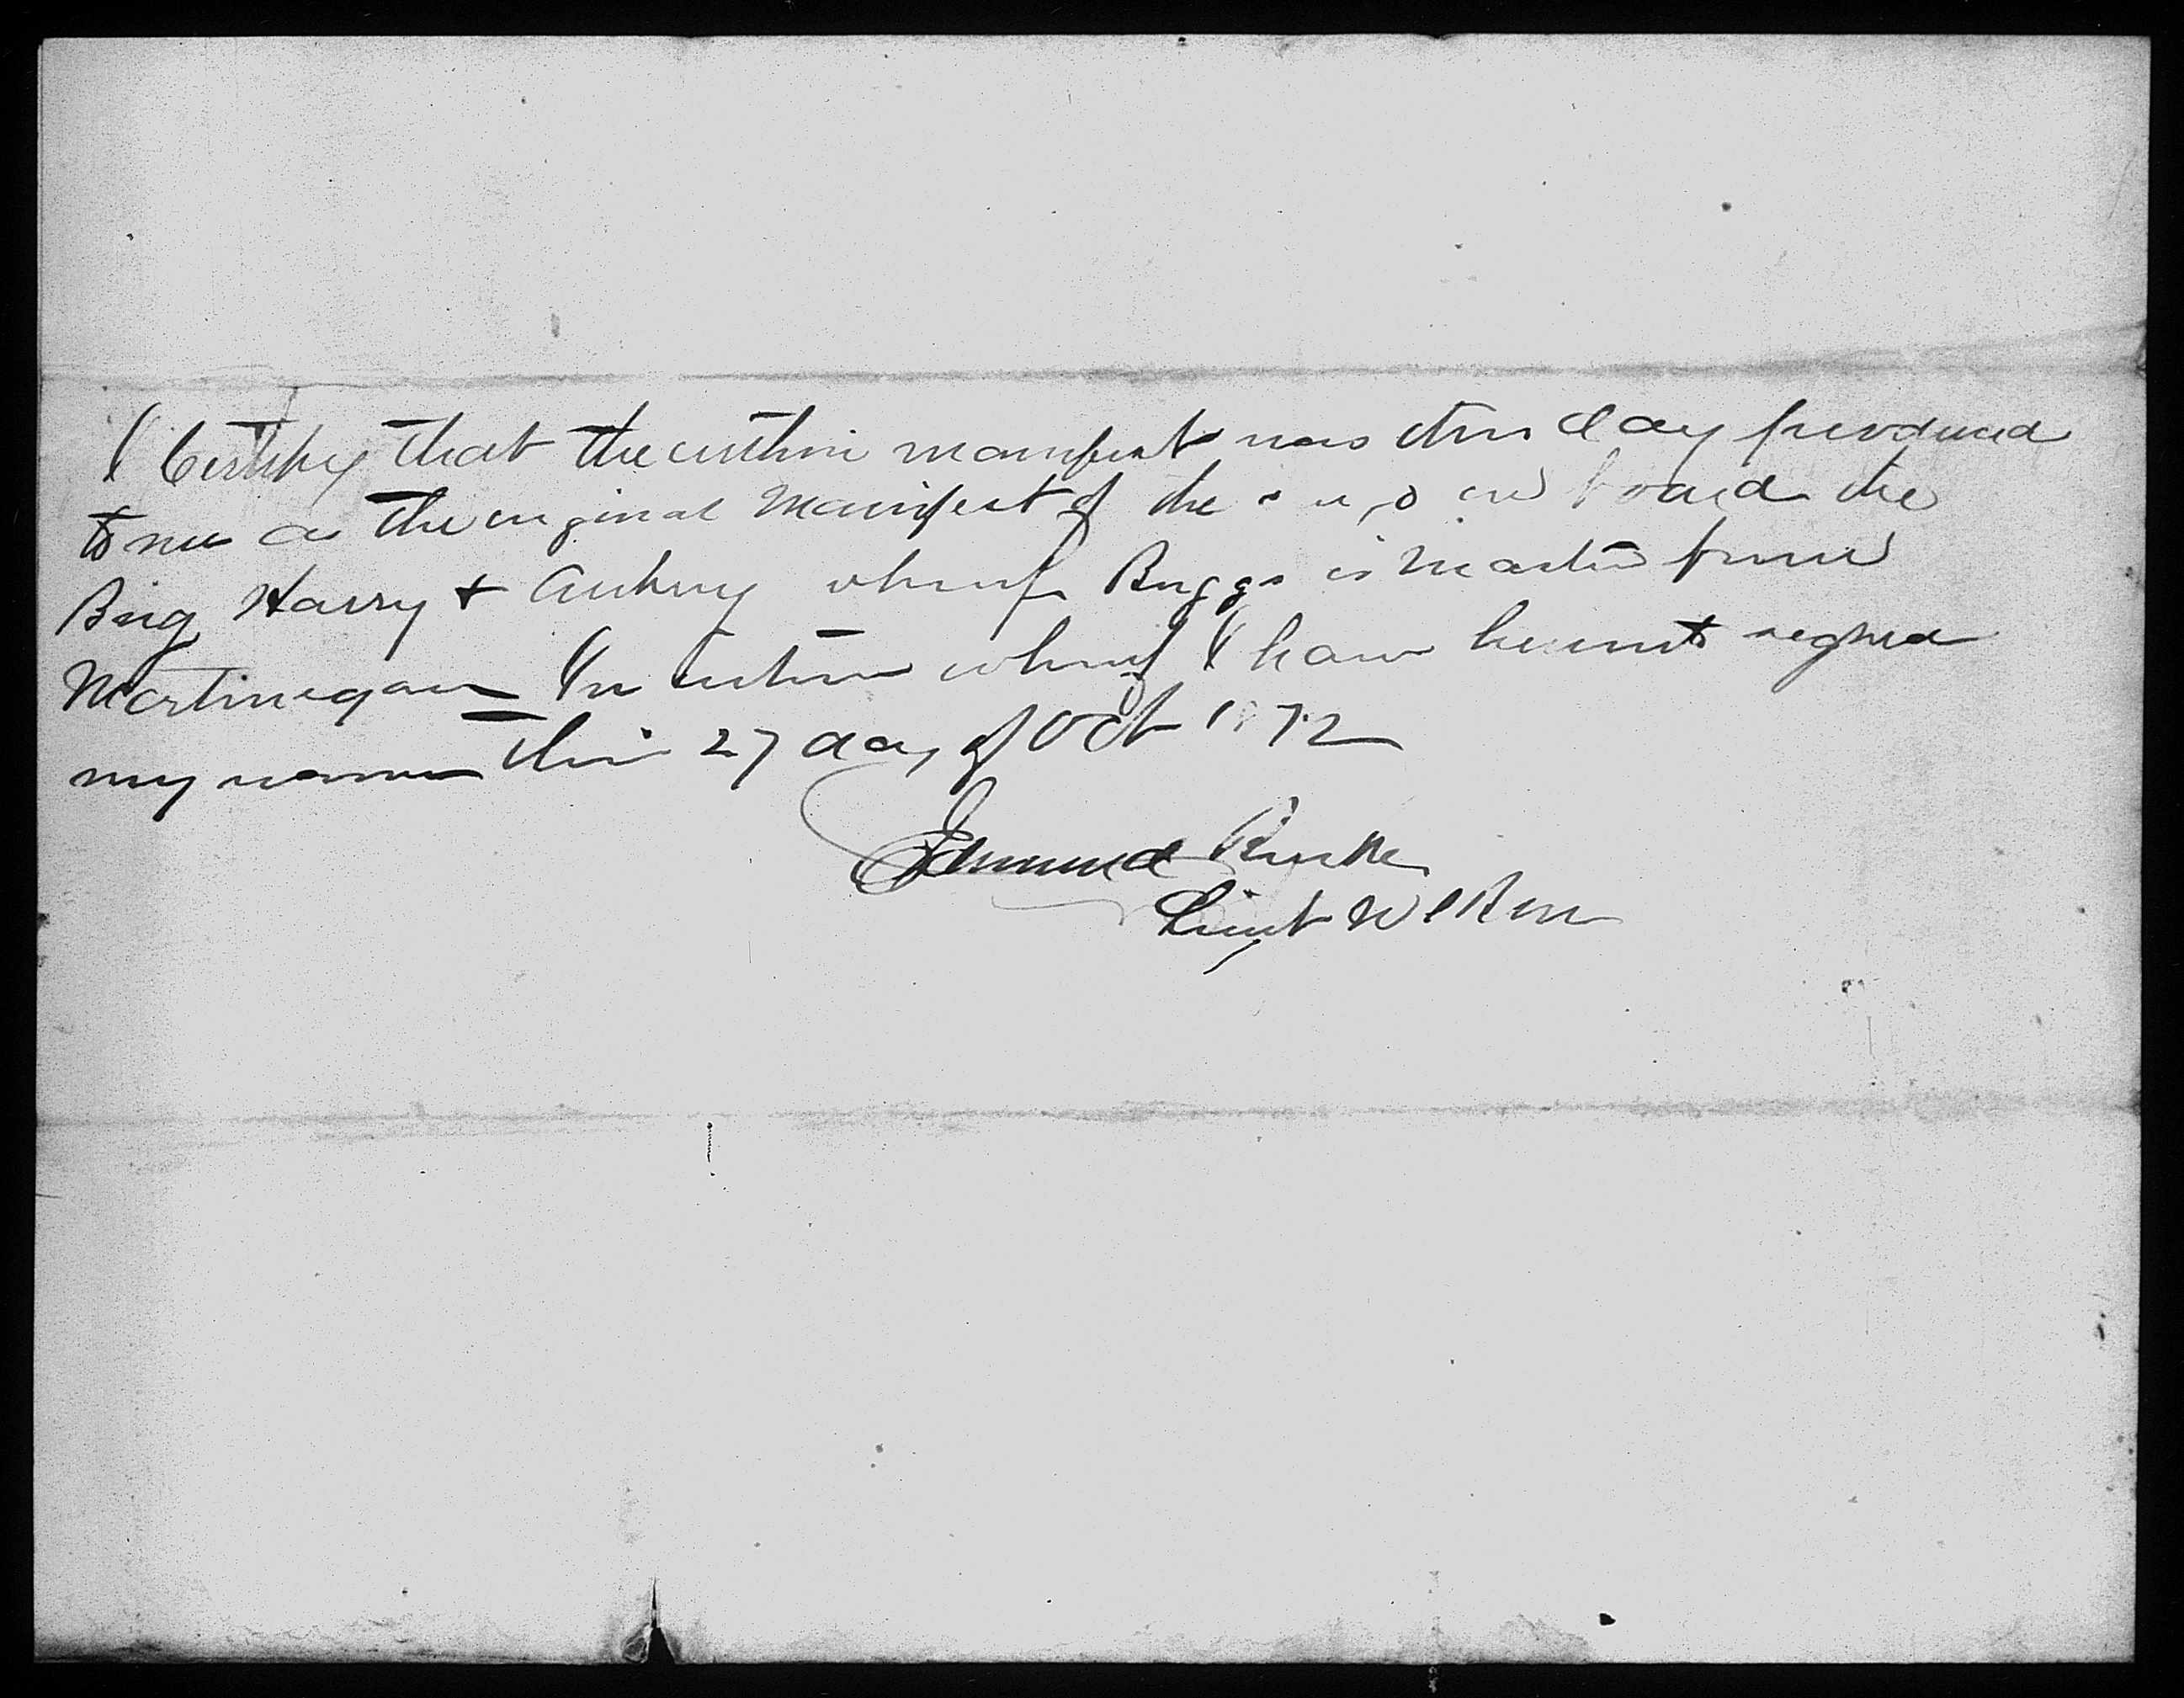 I Certify that the within manifest was this day produced
to me as the original Manifest of the cargo on board the
Brig Harry & Aubrey whereof Briggs is Master from
Martinique In testim whereof I have hereunto signed
my name this 27 day of Oct 1872
Edmund Burke
Lieut